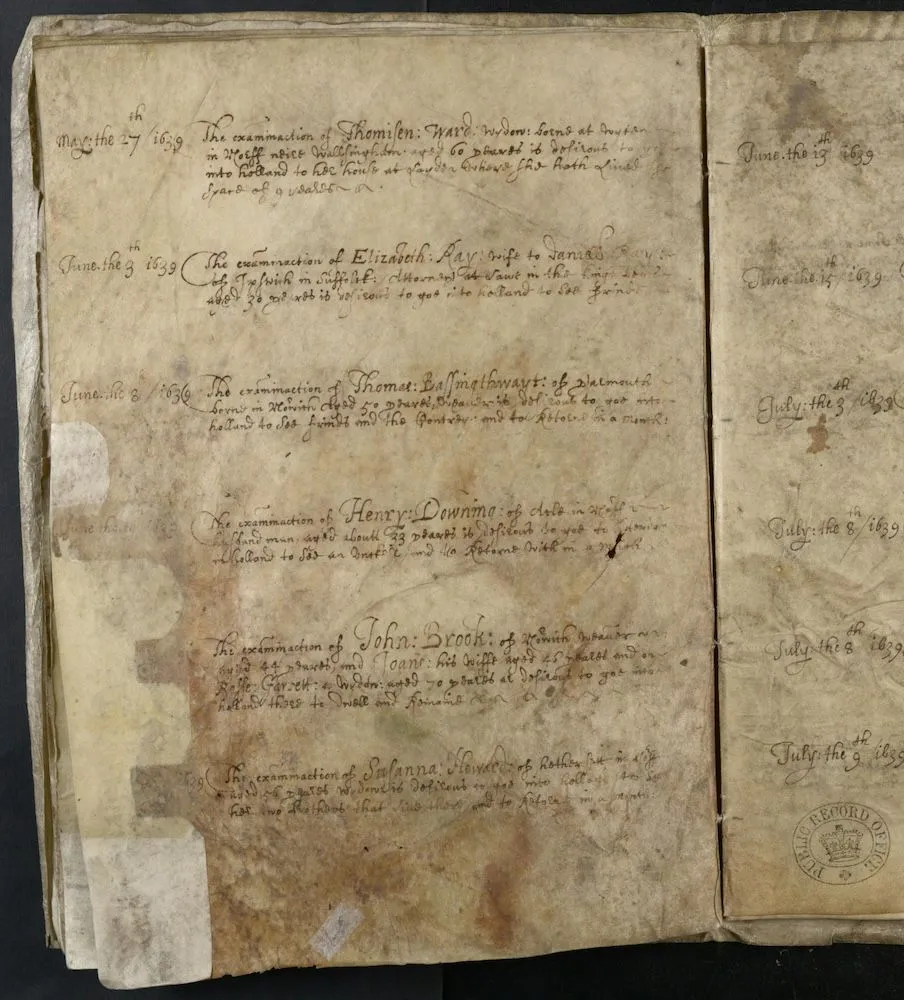 May: the 27th / 1639
The examinaction of Thomisen: Ward: wydow: borne at
in Norff neire Wallsingham aged 60 yeares is desirous to
into holland to her house at Layden where she hath Lived
space of 9 yeares
June. the 3th 1639
The examinaction of Elizabeth: Kay: wife to Daniell Kay
of Ipswich in Suffolk: Attorney at Lawe in the kings
aged 30 yeares is desirous to goe into holland to see frinds
June. the 8 / 1639
The examinaction of Thomas: Bassingthwayt: of Yarmouth
borne in Norwich aged 50 yeares, weaver is desirous to goe into
holland to see frinds and the Contrey: and to Retorne in a month:
June the
The examinaction of Henry: Downing: of Acle in Norff
husband man, aged about 33 yeares is desirous to goe to
in holland to see an and to Retorne with in a month
The examinaction of John: Brook: of Norwich Weaver
aged 44 yeares, and Joane: his wiffe aged 46 yeares and on
Garrett: a wydow: aged 70 yeares ar desirous to goe into
holland there to dwell and Remaine
The examinaction of Susanna: Howard: of in
aged 56 yeares wydowe is desirous to goe into holland to
her two that live there and to Retorne in a month:
June. the 13th 1639
June. the 15th / 1639
July: the 3th / 1639
July: the 8th / 1639
July: the 8th 1639
July: the 9th 1639
PUBLIC RECORD OFFICE